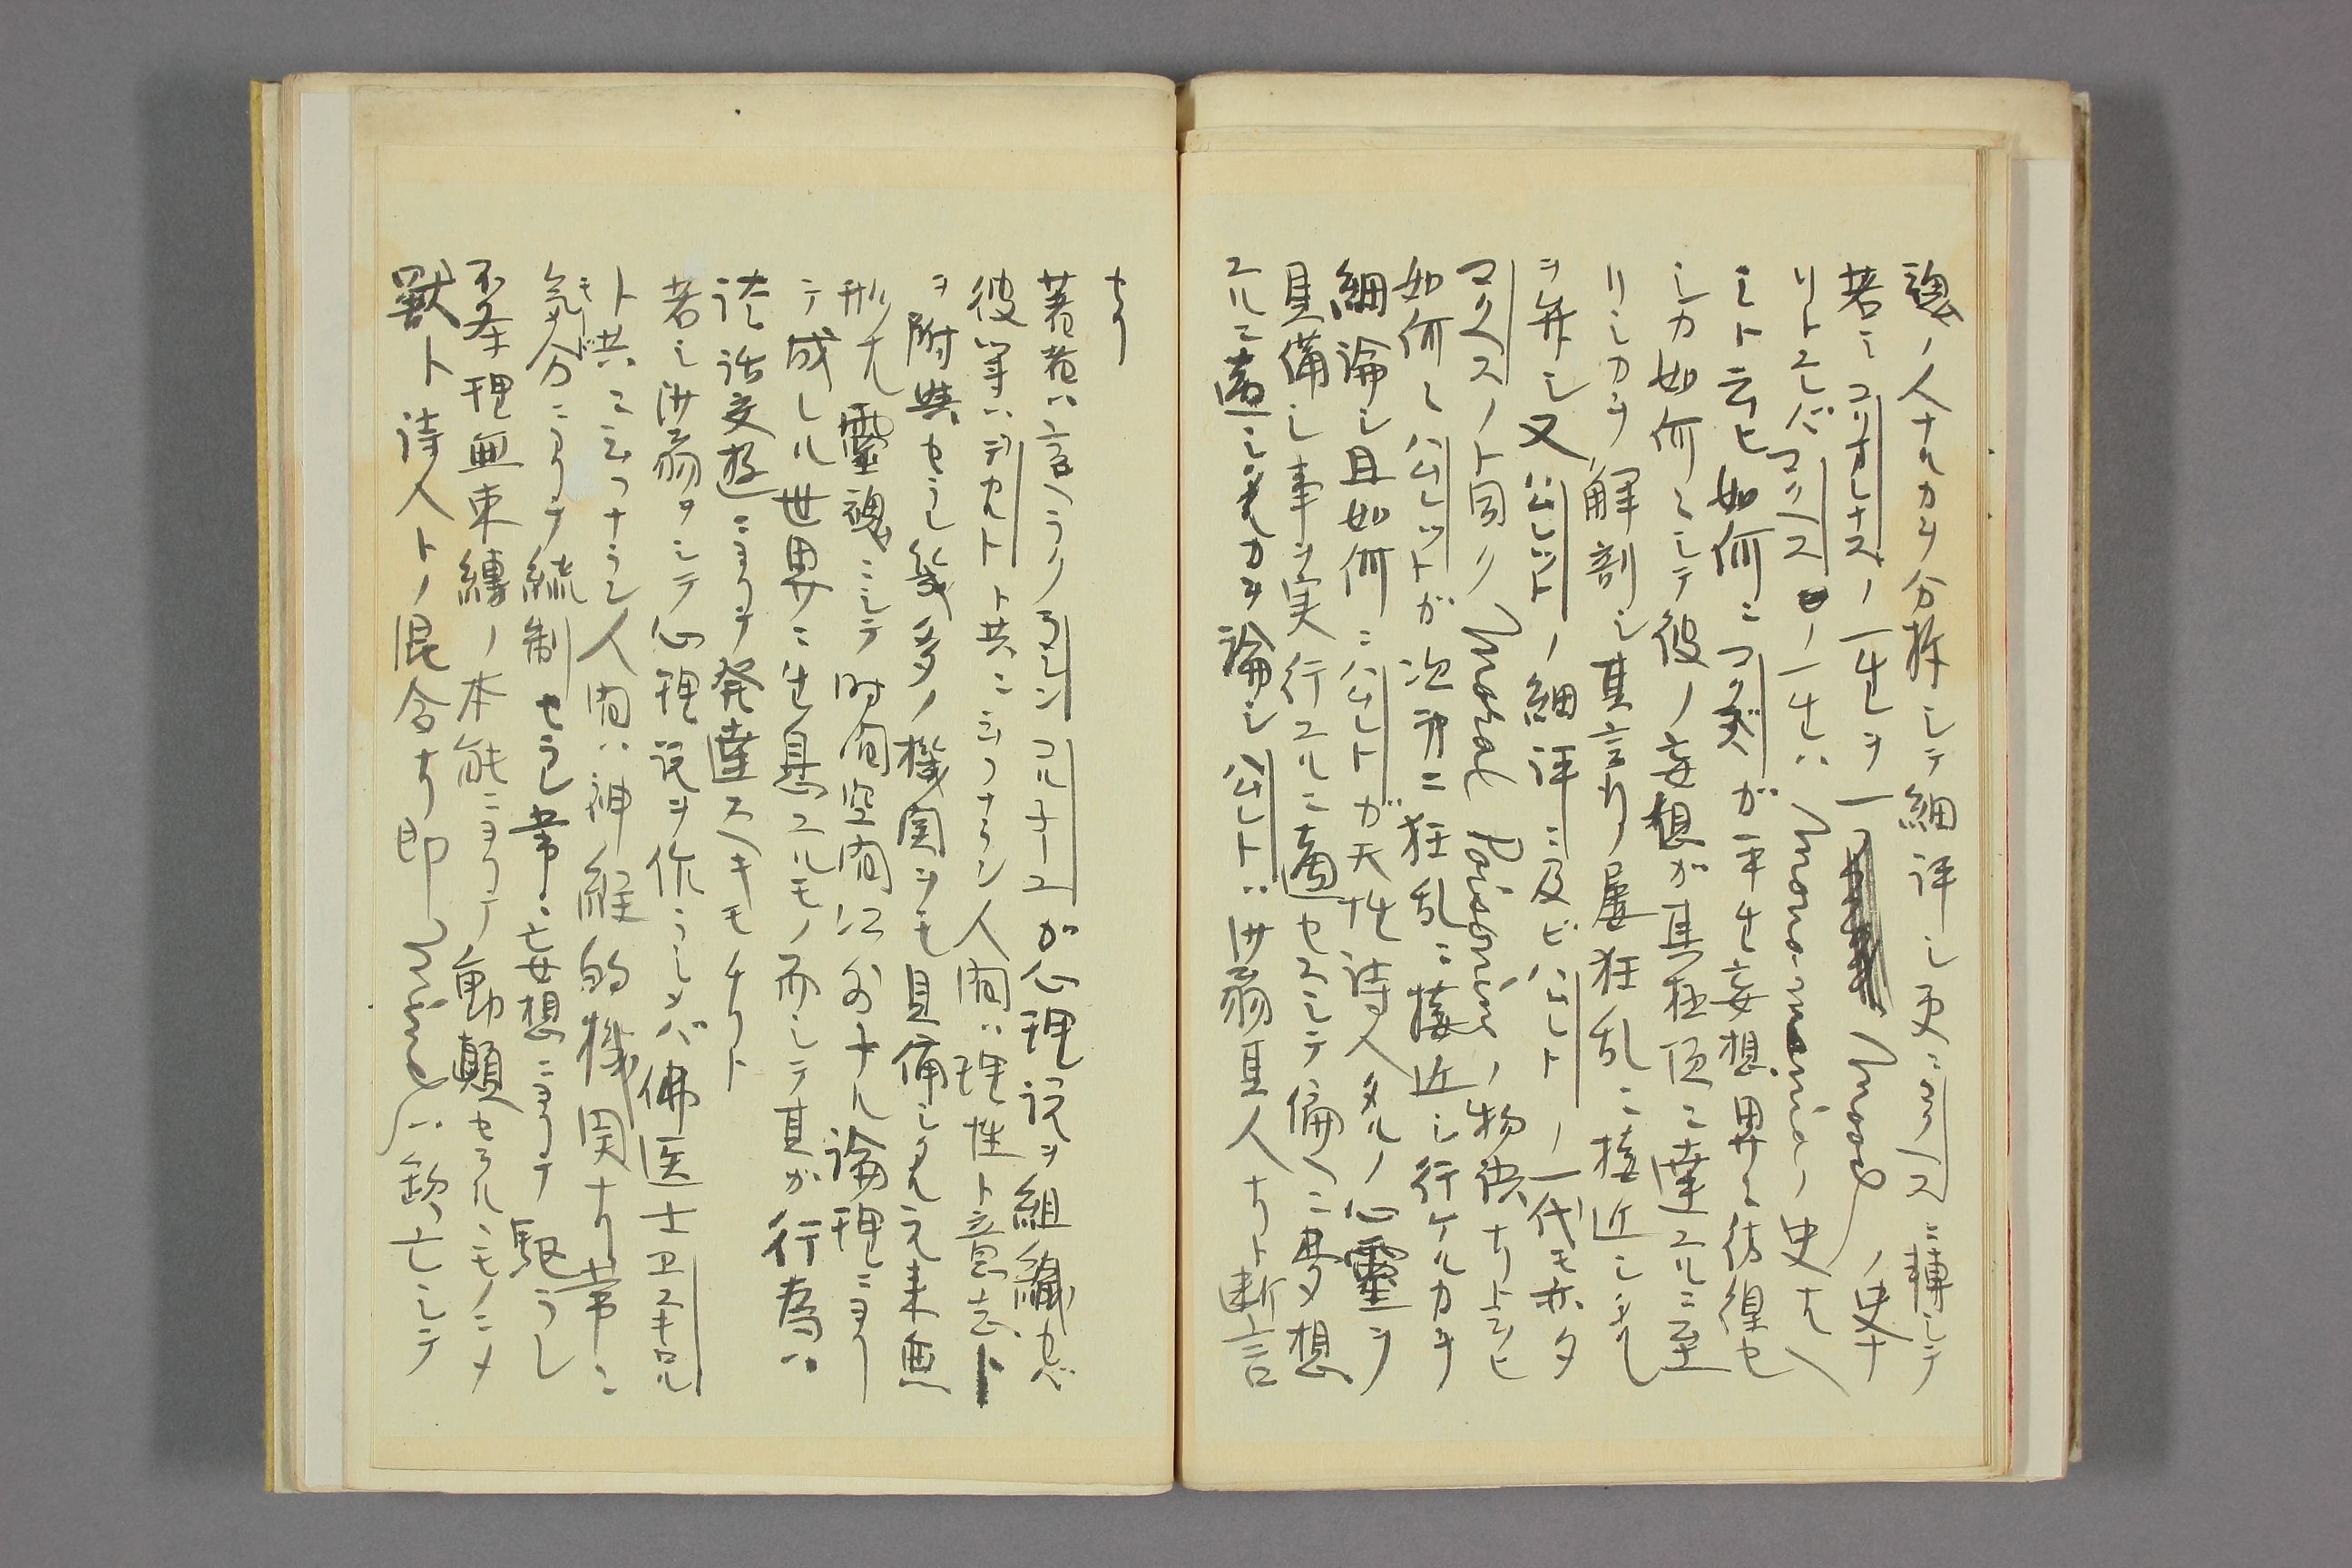 魂ノ人ナルカヲ分析シテ細評シ更ニマクベスニ轉シテ
若シコリオレナスノ一生ヲ一ツノ
リトエレバマクベスノ一生ハノ史ナ
ミト云ヒ如何ニマクベスガ平生妄想界ニ彷徨セ
シカ如何ニシテ彼ノ妄想ガ其極頂ニ達スルニ至
リシカヲ解剖シ其言行ノ屢狂乱ニ接近シタル
ヲ弁シ又ハムレットノ細評ニ及ビハムレットノ一代モ亦タ
マクベスノト同ジクノ物語ナリト云ヒ
如何ニハムレットガ次第ニ狂乱ニ接近シ行ケルカヲ
細論シ且如何ニハムレットガ天性詩人タルノ心靈ヲ
具備シ事ヲ実行スルニ適セズシテ偏ヘニ夢想
スルニ適シタルカヲ論シハムレットハ即詩人ナリト断言
セリ
著者ハ言ヘラクラシンコルネーユガ心理説ヲ組織セバ
彼等ハデカルトト共ニ云フナラン人間ハ理性ト意志ト
ヲ附與セラレ幾多ノ機関ヲモ具備シタル元来無
形ナル靈魂ニシテ時間空間以外ナル論理ニヨリ
テ成レル世界ニ生息スルモノ而シテ其ガ行為ハ
談話交遊ニヨリテ発達スヘキモノナリト
若シ沙翁ヲシテ心理説ヲ作ラシメバ佛医士エスキロル
ト共ニ云フナラン人間ハ神經的機関ナリ常ニ
気分ニヨリテ統制セラレ常ニ妄想ニヨリテ駆ラレ
不条理無束縛ノ本能ニヨリテ動顛セラルヽモノニメ
獸ト詩人トノ混合ナリ即ハ欠亡シテ